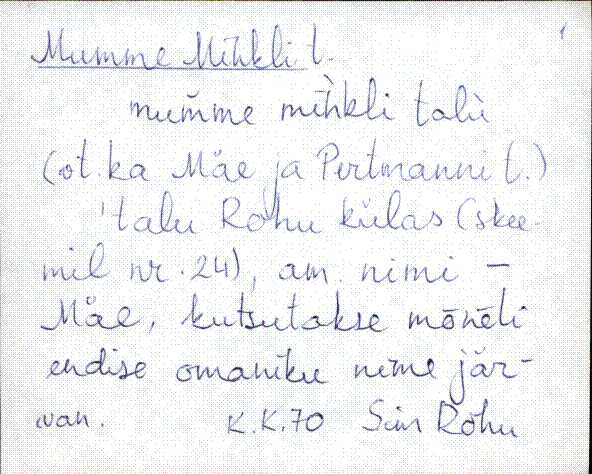 1
Mumme Mihkli t.
mum̆me mih̀kli talù
(vt. ka Mäe ja Pertmanni t.)
'talu Rõhu külas (skee-
mil nr. 24), am. nimi –
Mäe, kutsutakse mõnèti
endise omaniku nime jär-
van. K.K.70 San Rõhu